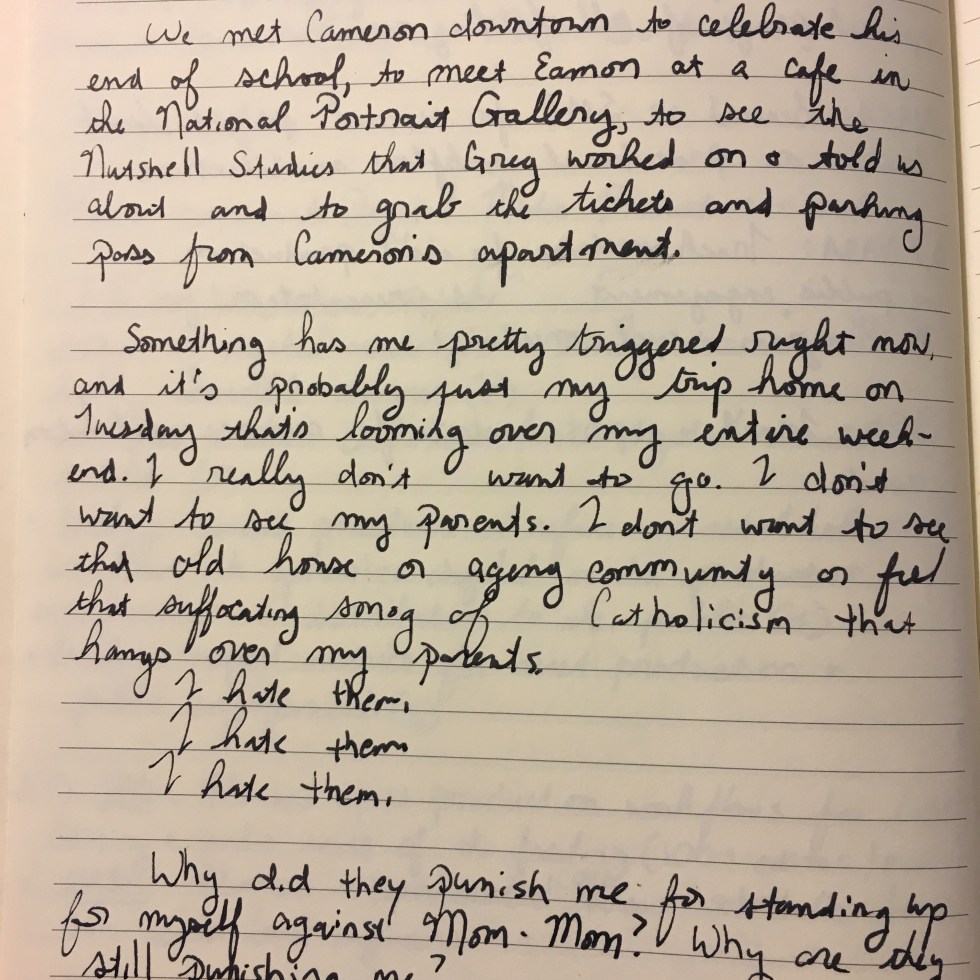 We met Cameron downtown to celebrate his
end of school, to meet Eamon at a cafe in
the National Portrait Gallery, to see the
Nutshell Studies that Greg worked on & told us
about and to grab the tickets and parking
pass from Cameron's apartment.
Something has me pretty triggered right now,
and it's probably just my trip home on
Tuesday that's looming over my entire week-
end. I really don't want to go. I don't
want to see my parents. I don't want to see
that old house or ageng community or feel
that suffocating smog of Catholicism that
hangs over my parents.
I hate them.
I hate them
I hate them.
Why did they punish me for standing up
for myself against Mom-Mom? Why are they
still punishing me?